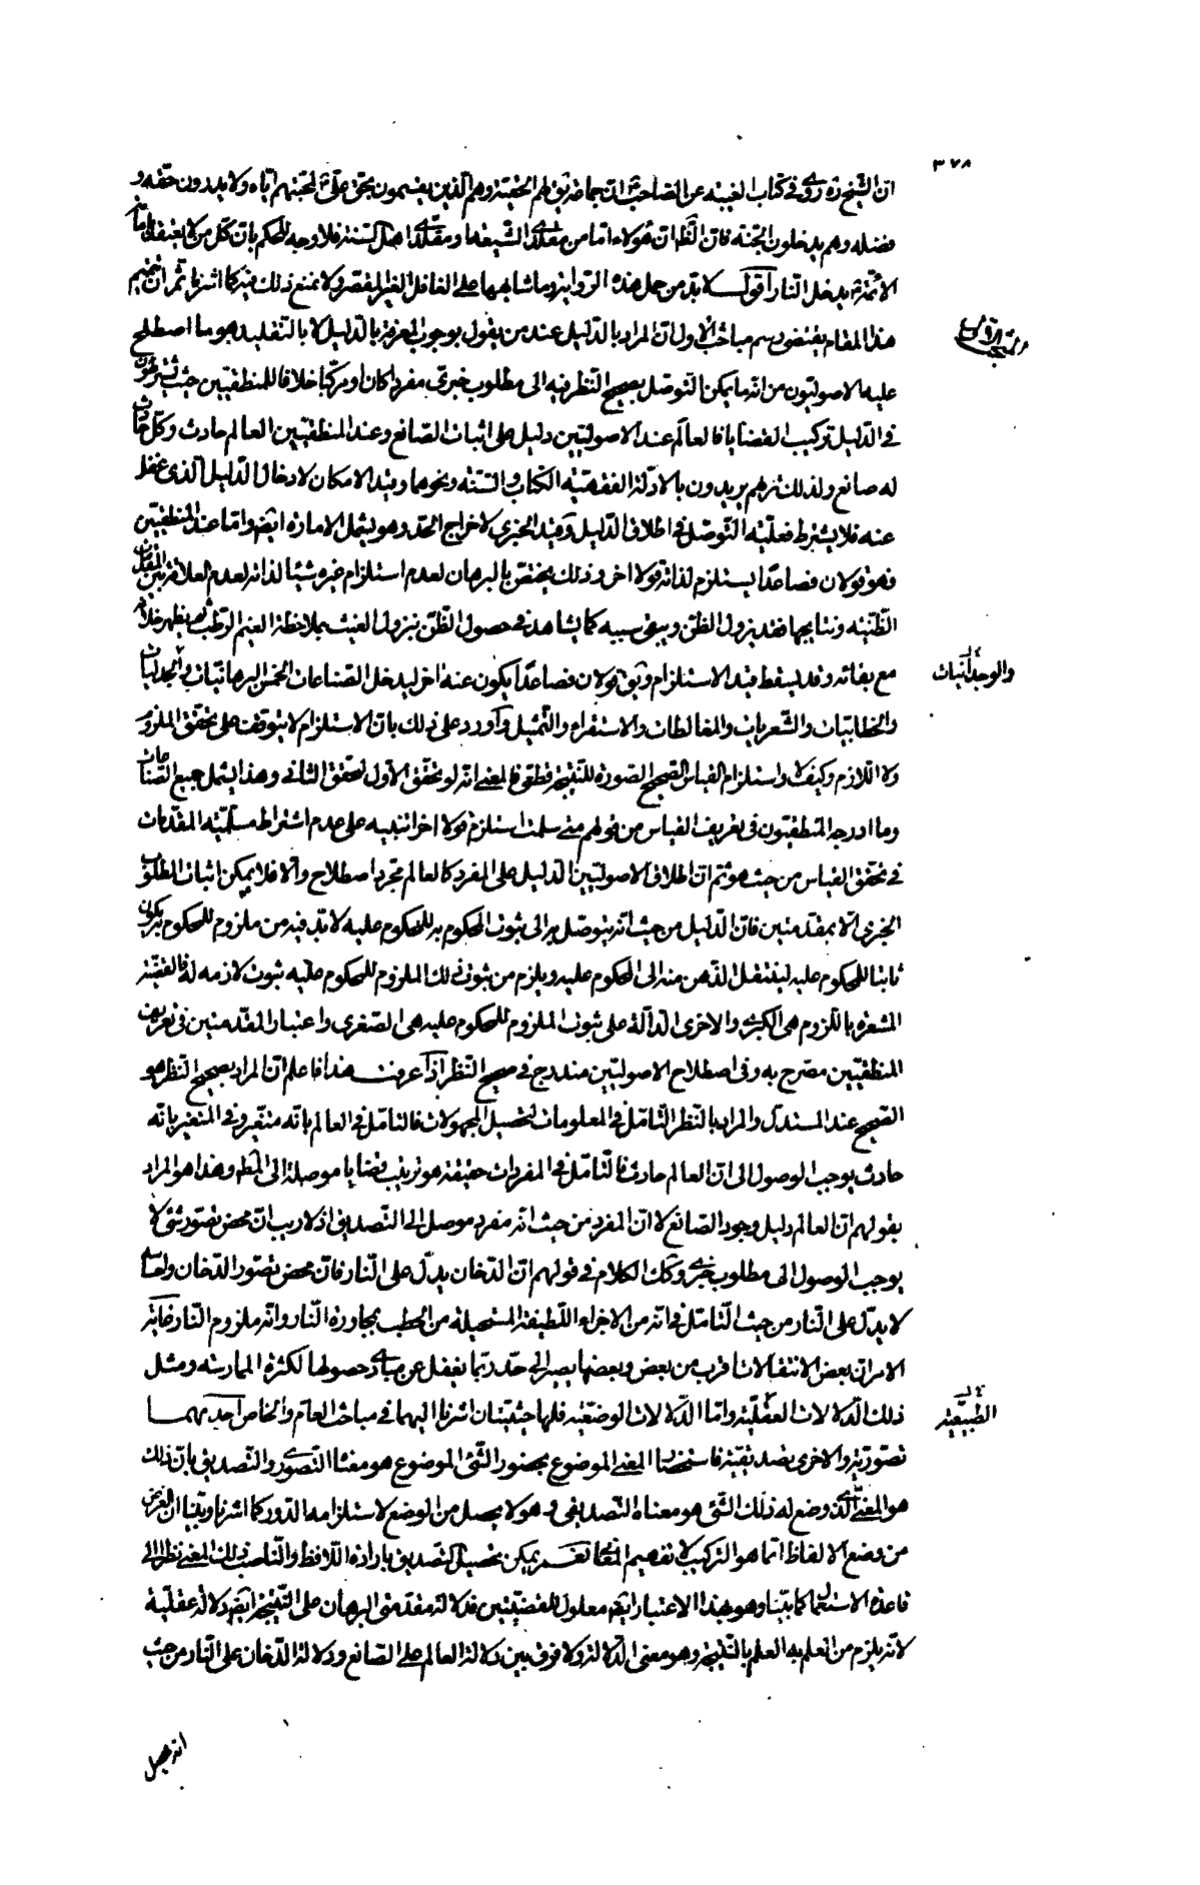 ٣٧٨
ان الشيخ ره روى فى كتاب الغيبة عن الصاحب ان جماعة يق لهم الحقية وهم الذين يقسمون بحق على لمحبتهم اياه ولا يدرون حقه و
فضله وهم يدخلون الجنة فان الظ ان هؤلاء اما من مقلدى الشيعة او مقلدى اهل السنة فلا وجه للحكم بان كل من لا يعتقد
الأئمة يدخل النار اقول لا بد من حمل هذه الرواية وما شابهها على الغافل الغير المقصر ولا نمنع ذلك فيه كما اشرنا ثم ان
هذا المقام يقتضى رسم مباحث الاول ان المراد بالدليل عند من يقول بوجوب المعرفة بالدليل لا بالتقليد هو ما اصطلح
عليه الاصوليون من انه ما يمكن التوصل بصحيح النظر فيه الى مطلوب خبرى مفردا كان او مركبا خلافا للمنطقيين حيث يشترطون
فى الدليل تركيب القضايا فالعالم عند الاصوليين دليل على اثبات الصانع وعند المنطقيين العالم حادث وكل حادث
له صانع ولذلك تريهم يريدون بالادلة الفقهية الكتاب والسنة ونحوهما وقيد الامكان لادخال الدليل الذى غفل
عنه فلا يشترط فعلية التوصل فى اطلاق الدليل وقيد الخبرى لاخراج الحد وهو يشمل الامارة ايضا واما عند المنطقيين
فهو قولان فصاعدا يستلزم لذاته قولا اخر وذلك يختص بالبرهان لعدم استلزام غيره شيئا لذاته لعدم العلاقة بين
الظنية ونتايجها فقد يزول الظن ويبقى سببه كما يشاهد فى حصول الظن بنزول الغيث بملاحظة الغيم الرطب ثم يظهر خلافه
مع بقائه وقد يسقط قيد الاستلزام ويق قولان فصاعدا يكون عنه اخر ليدخل الصناعات الخمس البرهانيات والجدليات
والخطابيات والشعريات والمغالطات والاستقراء والتمثيل واورد على ذلك بان الاستلزام لا يتوقف على تحقق الملزوم
ولا اللازم وكيف لا واستلزام القياس الصحيح الصورة للنتيجة قطعى فالمعنى انه لو تحقق الاول لتحقق الثانى وهذا يشمل جميع الصناعات
وما ادرجه المنطقيون فى تعريف القياس من قولهم متى سلمت استلزم قولا اخر تنبيه على عدم اشتراط مسلمية المقدمات
فى تحقق القياس من حيث هو ثم ان اطلاق الاصوليين الدليل على المفرد كالعالم مجرد اصطلاح والا فلا يمكن اثبات المطلوب
الخبرى الا بمقدمتين فان الدليل من حيث انه يتوصل به الى ثبوت المحكوم به للمحكوم عليه لا بد فيه من ملزوم للمحكوم به يكون
ثابتا للمحكوم عليه لينتقل الذهن منه الى المحكوم عليه ويلزم من ثبوت ذلك الملزوم للمحكوم عليه ثبوت لازمه له فالقضية
المشعرة باللزوم هى الكبرى والاخرى الدالة على ثبوت الملزوم للمحكوم عليه هى الصغرى واعتبار المقدمتين فى تعريف
المنطقيين مصرح به وفى اصطلاح الاصوليين مندرج فى صحيح النظر اذا عرفت هذا فاعلم ان المراد بصحيح النظر هو
الصحيح عند المستدل والمراد بالنظر التامل فى المعلومات لتحصيل المجهولات فالتامل فى العالم بانه متغير وفى المتغير بانه
حادث يوجب الوصول الى ان العالم حادث فالتامل فى المفردات حقيقة هو ترتيب قضايا موصلة الى المط وهذا هو المراد
بقولهم ان العالم دليل وجود الصانع لا ان المفرد من حيث انه مفرد موصل الى التصديق اذ لا ريب ان محض تصور شئ لا
يوجب الوصول الى مطلوب خبرى وكك الكلام فى قولهم ان الدخان يدل على النار فان محض تصور الدخان
لا يدل على النار من حيث التامل فى انه من الاجزاء اللطيفة المستحيلة من الحطب بمجاورة النار وانه ملزوم النار غاية
الامر ان بعض الانتقالات اقرب من بعض وبعضها يصير الى حد ربما يغفل عن مبادى حصولها لكثرة الممارسة ومثل
ذلك الدلالات العقلية واما الدلالات الوضعية فلها حيثيتان اشرنا اليهما فى مباحث العام والخاص احديهما
تصورية والاخرى تصديقية فاستحضار المعنى الموضوع بحضور الشئ الموضوع هو معنا التصورى والتصديق بان ذلك
هو المعنى الذى وضع له ذلك الشئ هو معناه التصديقى وهو لا يحصل من الوضع لاستلزامه الدور كما اشرنا وبينا ان الغرض
من وضع الالفاظ انما هو التركيب لا تفهيم المعانى نعم يمكن تحصيل التصديق بارادة اللافظ والناصب ذلك المعنى نظرا الى
قاعدة الاستعمال كما بينا وهو بهذا الاعتبار ايضا معلول للقضيتين فدلالة مقدمتى البرهان على النتيجة ايضا دلالة عقلية
لانه يلزم من العلم به العلم بالنتيجة وهو معنى الدلالة ولا فرق بين دلالة العالم على الصانع ودلالة الدخان على النار من حيث
والوجدانيات
الطبيعية
انه يحصل